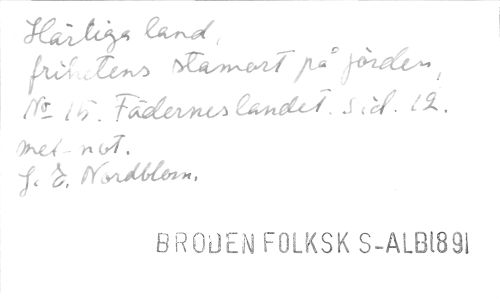 Härliga land,
frihetens stamort på jorden,
No 15. Fäderneslandet. Sid. 12.
met not.
J. E. Nordblom.
BRODEN FOLKSK S-ALB1891